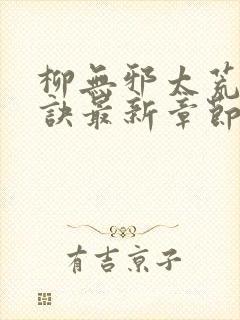 柳無邪太荒
訣最新章節
有吉京子